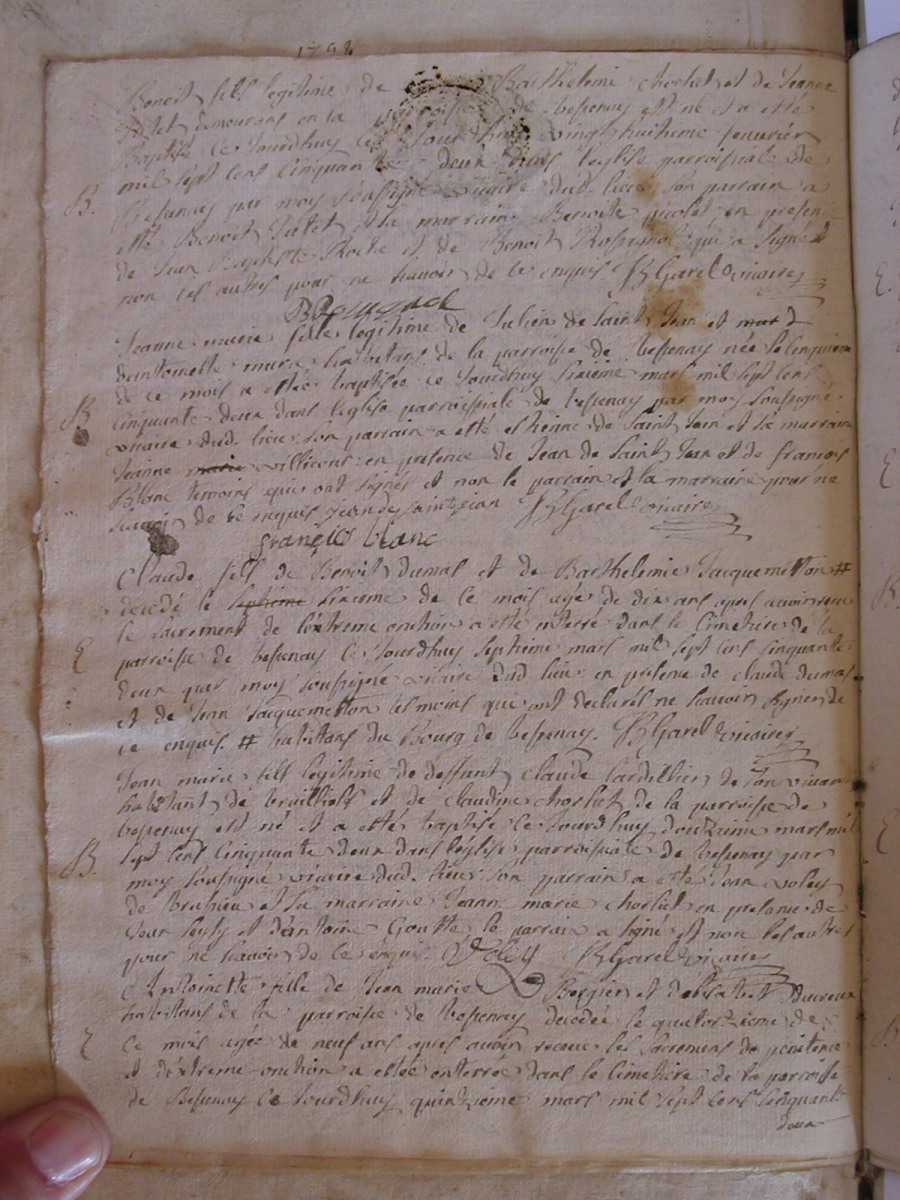 1752
Benoit fils legitime de Barthelemi chorlet et de Jeanne
demeurans en la parroisse de bessenay est né et a etté
Baptisé ce Jourdhuy vingt huitieme feuvrier
mil sept cens cinquante deux dans leglise parroissiale de
B. Bessenay par moy soussigné vicaire dud. lieu, son parrain a
etté Benoit et la marraine Benoite en presen
de Jean Baptiste Roche et de Benoit Rossignol qui a signé et
non les autres pour ne scavoir de ce enquis JB Garel vicaire
Jeanne marie fille legitime de Julien de Saint Jean et
dantoinette mura habitans de la parroisse de bessenay née le cinquieme
de ce mois a ettée baptisée ce Jourdhuy sixieme mars mil sept cens
B cinquante deux dans leglise parroissiale de bessenay par moy soussigné
vicaire dud. lieu, son parrain a etté estienne de Saint Jean et sa marraine
Jeanne marie en presence de Jean de Saint Jean et de françois
Blanc temoins qui ont signés et non le parrain et la marraine pour ne
scavoir de ce enquis Jean de saint jean JB Garel vicaire
françois blanc
Claude fils de Benoit dumas et de Barthelemie Jacquemetton #
decedé le septieme sixieme de ce mois age de dix ans apres avoir receu
le sacrement de l'extreme onction a eté interré dans le Cimetiere de la
E parroisse de bessenay ce Jourdhuy septieme mars mil sept cens cinquante
deux par moy soussigné vicaire dud lieu en presence de claude dumas
et de Jean Jacquemetton temoins qui ont declarés ne scavoir signer de
ce enquis. # habitans du Bourg de bessenay. JB Garel vicaire
Jean marie fils legitime de deffunt claude Cardillier de son vivant
habitant de et de claudine chorlet de la parroisse de
bessenay est né et a etté baptisé ce Jourdhuy douzieme mars mil
B. sept cens cinquante deux dans l'église parroissiale de bessenay par
moy soussigné vicaire dud. lieu son parrain a eté Jean
de Brussieu et la marraine Jeanne marie chorlet en presence de
Jean et d'antoine Goutte le parrain a signé et non les autres
pour ne scavoir de ce enquis. JB Garel vicaire
Antoinette fille de Jean marie Bergier et d'elisabeth
habitans de la parroisse de bessenay decedée le quatorzieme de
E ce mois agée de neuf ans apres avoir receue les sacremens de penitence
et d'extreme onction a ettée enterrée dans le Cimetiere de la parroisse
de Bessenay ce Jourdhuy quinzieme mars mil sept cens cinquante
deux